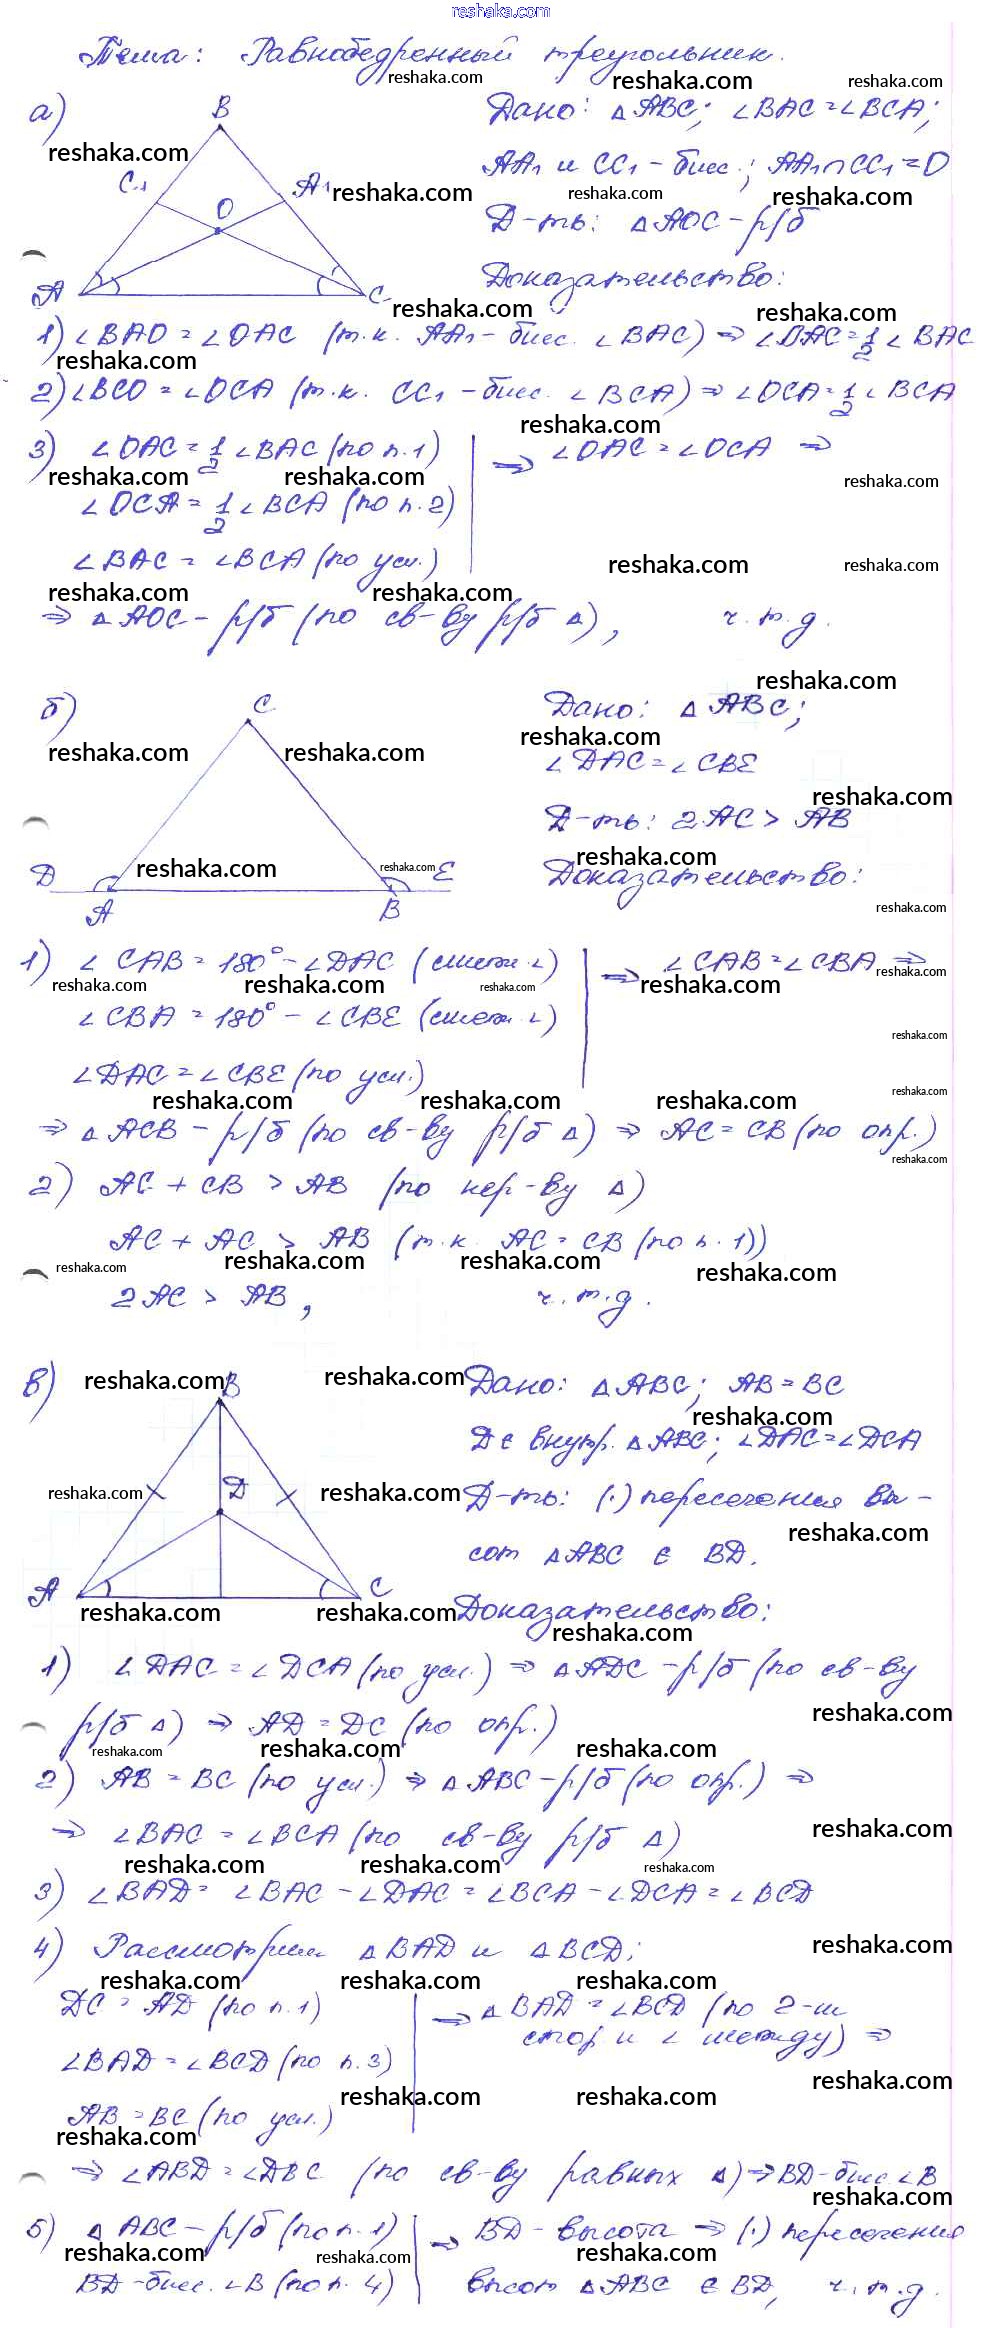 reshaka.com
Тема: Равнобедренный треугольник.
а)
B
C₁
A₁
O
A
C
Дано: △ABC; ∠BAC = ∠BCA;
AA₁ и CC₁ - бисс.; AA₁∩CC₁ = O
Д-ть: △AOC - р/б
Доказательство:
1) ∠BAO = ∠OAC (т.к. AA₁ - бисс. ∠BAC) ⇒ ∠OAC = 1/2 ∠BAC
2) ∠BCO = ∠OCA (т.к. CC₁ - бисс. ∠BCA) ⇒ ∠OCA = 1/2 ∠BCA
3) ∠OAC = 1/2 ∠BAC (по п.1) ⇒ ∠OAC = ∠OCA ⇒
∠OCA = 1/2 ∠BCA (по п.2)
∠BAC = ∠BCA (по усл.)
⇒ △AOC - р/б (по св-ву р/б △), ч.т.д.
б)
C
D
A
B
E
Дано: △ABC;
∠DAC = ∠CBE
Д-ть: 2AC > AB
Доказательство:
1) ∠CAB = 180° - ∠DAC (смежн. ∠) ⇒ ∠CAB = ∠CBA ⇒
∠CBA = 180° - ∠CBE (смежн. ∠)
∠DAC = ∠CBE (по усл.)
⇒ △ACB - р/б (по св-ву р/б △) ⇒ AC = CB (по опр.)
2) AC + CB > AB (по нер-ву △)
AC + AC > AB (т.к. AC = CB (по п.1))
2AC > AB, ч.т.д.
в)
B
D
A
C
Дано: △ABC; AB = BC
D ∈ внутр. △ABC; ∠DAC = ∠DCA
Д-ть: (·) пересечения вы-
сот △ABC ∈ BD.
Доказательство:
1) ∠DAC = ∠DCA (по усл.) ⇒ △ADC - р/б (по св-ву
р/б △) ⇒ AD = DC (по опр.)
2) AB = BC (по усл.) ⇒ △ABC - р/б (по опр.) ⇒
⇒ ∠BAC = ∠BCA (по св-ву р/б △)
3) ∠BAD = ∠BAC - ∠DAC = ∠BCA - ∠DCA = ∠BCD
4) Рассмотрим △BAD и △BCD:
DC = AD (по п.1) ⇒ △BAD = ∠BCD (по 2-м
стор и ∠ между) ⇒
∠BAD = ∠BCD (по п.3)
AB = BC (по усл.)
⇒ ∠ABD = ∠DBC (по св-ву равных △) ⇒ BD - бисс. ∠B
5) △ABC - р/б (по п.1) ⇒ BD - высота ⇒ (·) пересечения
BD - бисс. ∠B (по п. 4) высот △ABC ∈ BD, ч.т.д.